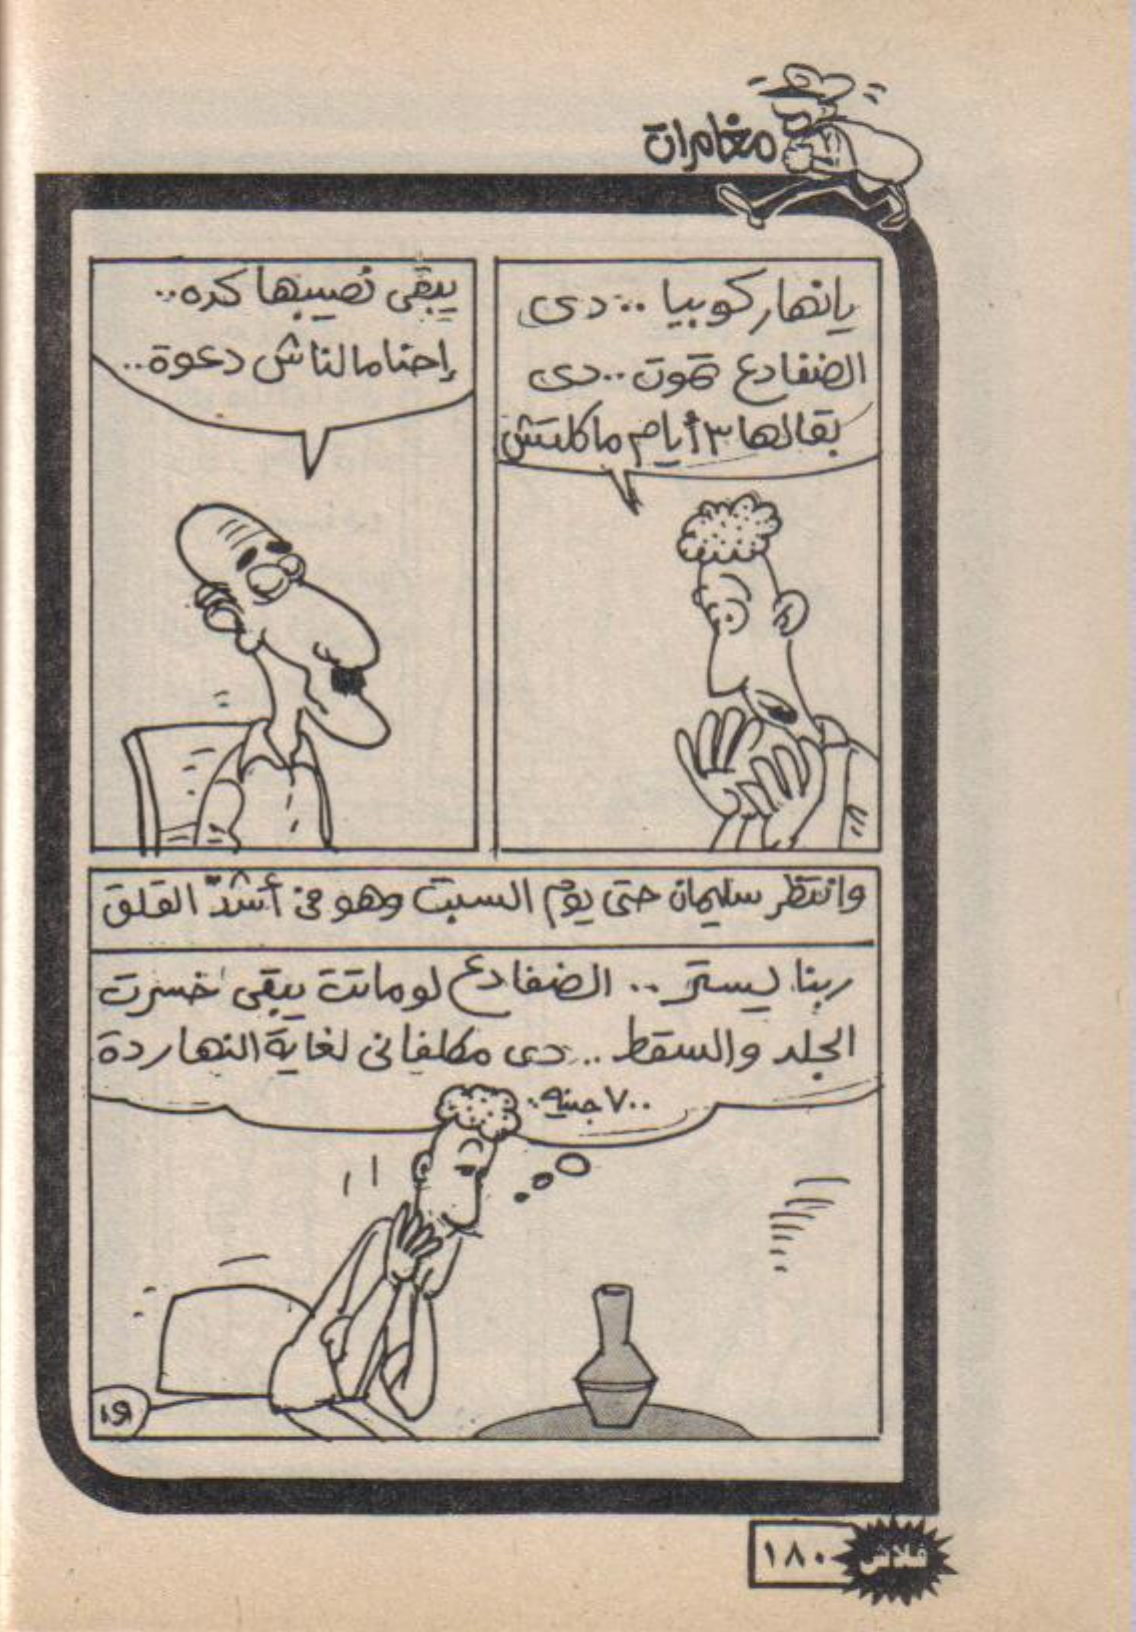 مغامرات
يانهار كوبيا ... دى
الضفادع تموت .. دى
بقالها ٣ أيام ماكلتش
يبقى نصيبها كده ..
إحنا مالناش دعوة ..
وانتظر سليمان حتى يوم السبت وهو فى أشدّ القلق
ربنا يستر .. الضفادع لو ماتت يبقى خسرت
الجلد والسقط .. دى مكلفانى لغاية النهاردة
٧٠٠ جنيه ..
١٩
فلاش
١٨٠